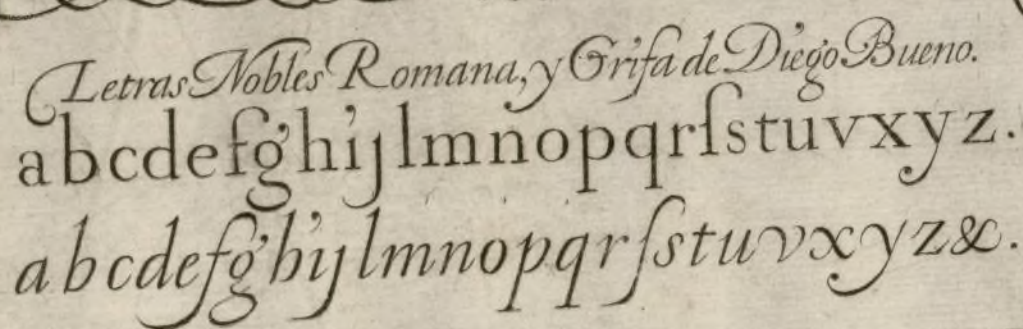 Letras Nobles Romana, y Grifa de Diego Bueno.
a b c d e f g h i j l m n o p q r ſ s t u v x y z .
a b c d e f g h i j l m n o p q r ſ s t u v x y z & .